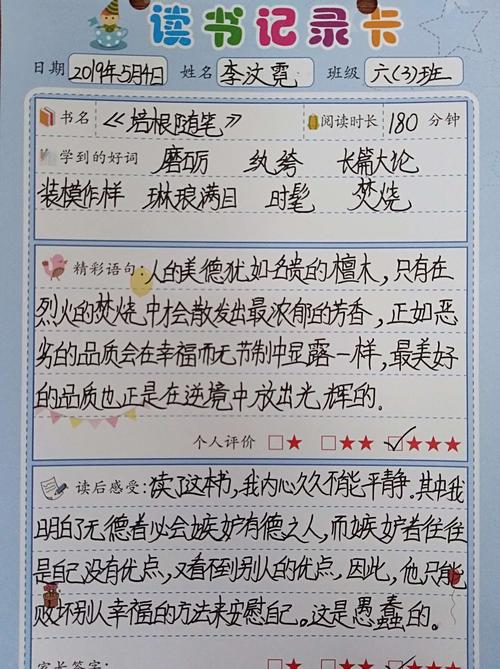 读书记录卡
日期 2019年5月4日 姓名 李汶霓 班级 六(3)班
书名 《培根随笔》 阅读时长 180 分钟
学到的好词 磨砺 纨绔 长篇大论
装模作样 琳琅满目 时髦 焚烧
精彩语句:人的美德犹如名贵的檀木,只有在
烈火的焚烧中才会散发出最浓郁的芳香,正如恶
劣的品质会在幸福而无节制中显露一样,最美好
的品质也正是在逆境中放出光辉的.
个人评价 □★ □★★ ☑★★★
读后感受:读了这本书,我内心久久不能平静.其中我
明白了无德者必会嫉妒有德之人,而嫉妒者往往
是自己没有优点,又看不到别人的优点,因此,他只能
败坏别人幸福的方法来安慰自己。这是愚蠢的.
家长签字: □★ □★★ □★★★